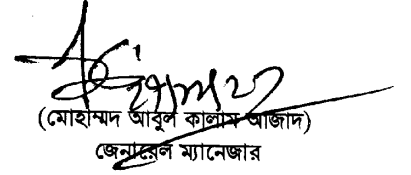 (মোহাম্মদ আবুল কালাম আজাদ)
জেনারেল ম্যানেজার